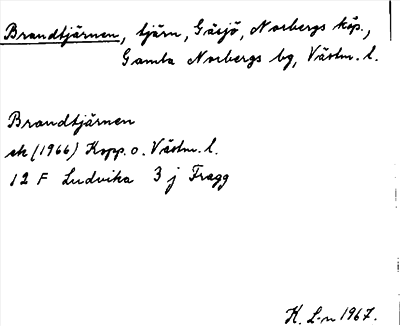 Brandtjärnen, tjärn, Gäsjö, Norbergs köp.,
Gamla Norbergs bg, Västm. l.
Brandtjärnen
ek (1966) Kopp. o. Västm. l.
12 F Ludvika 3 j Fragg
K. L-n 1967.